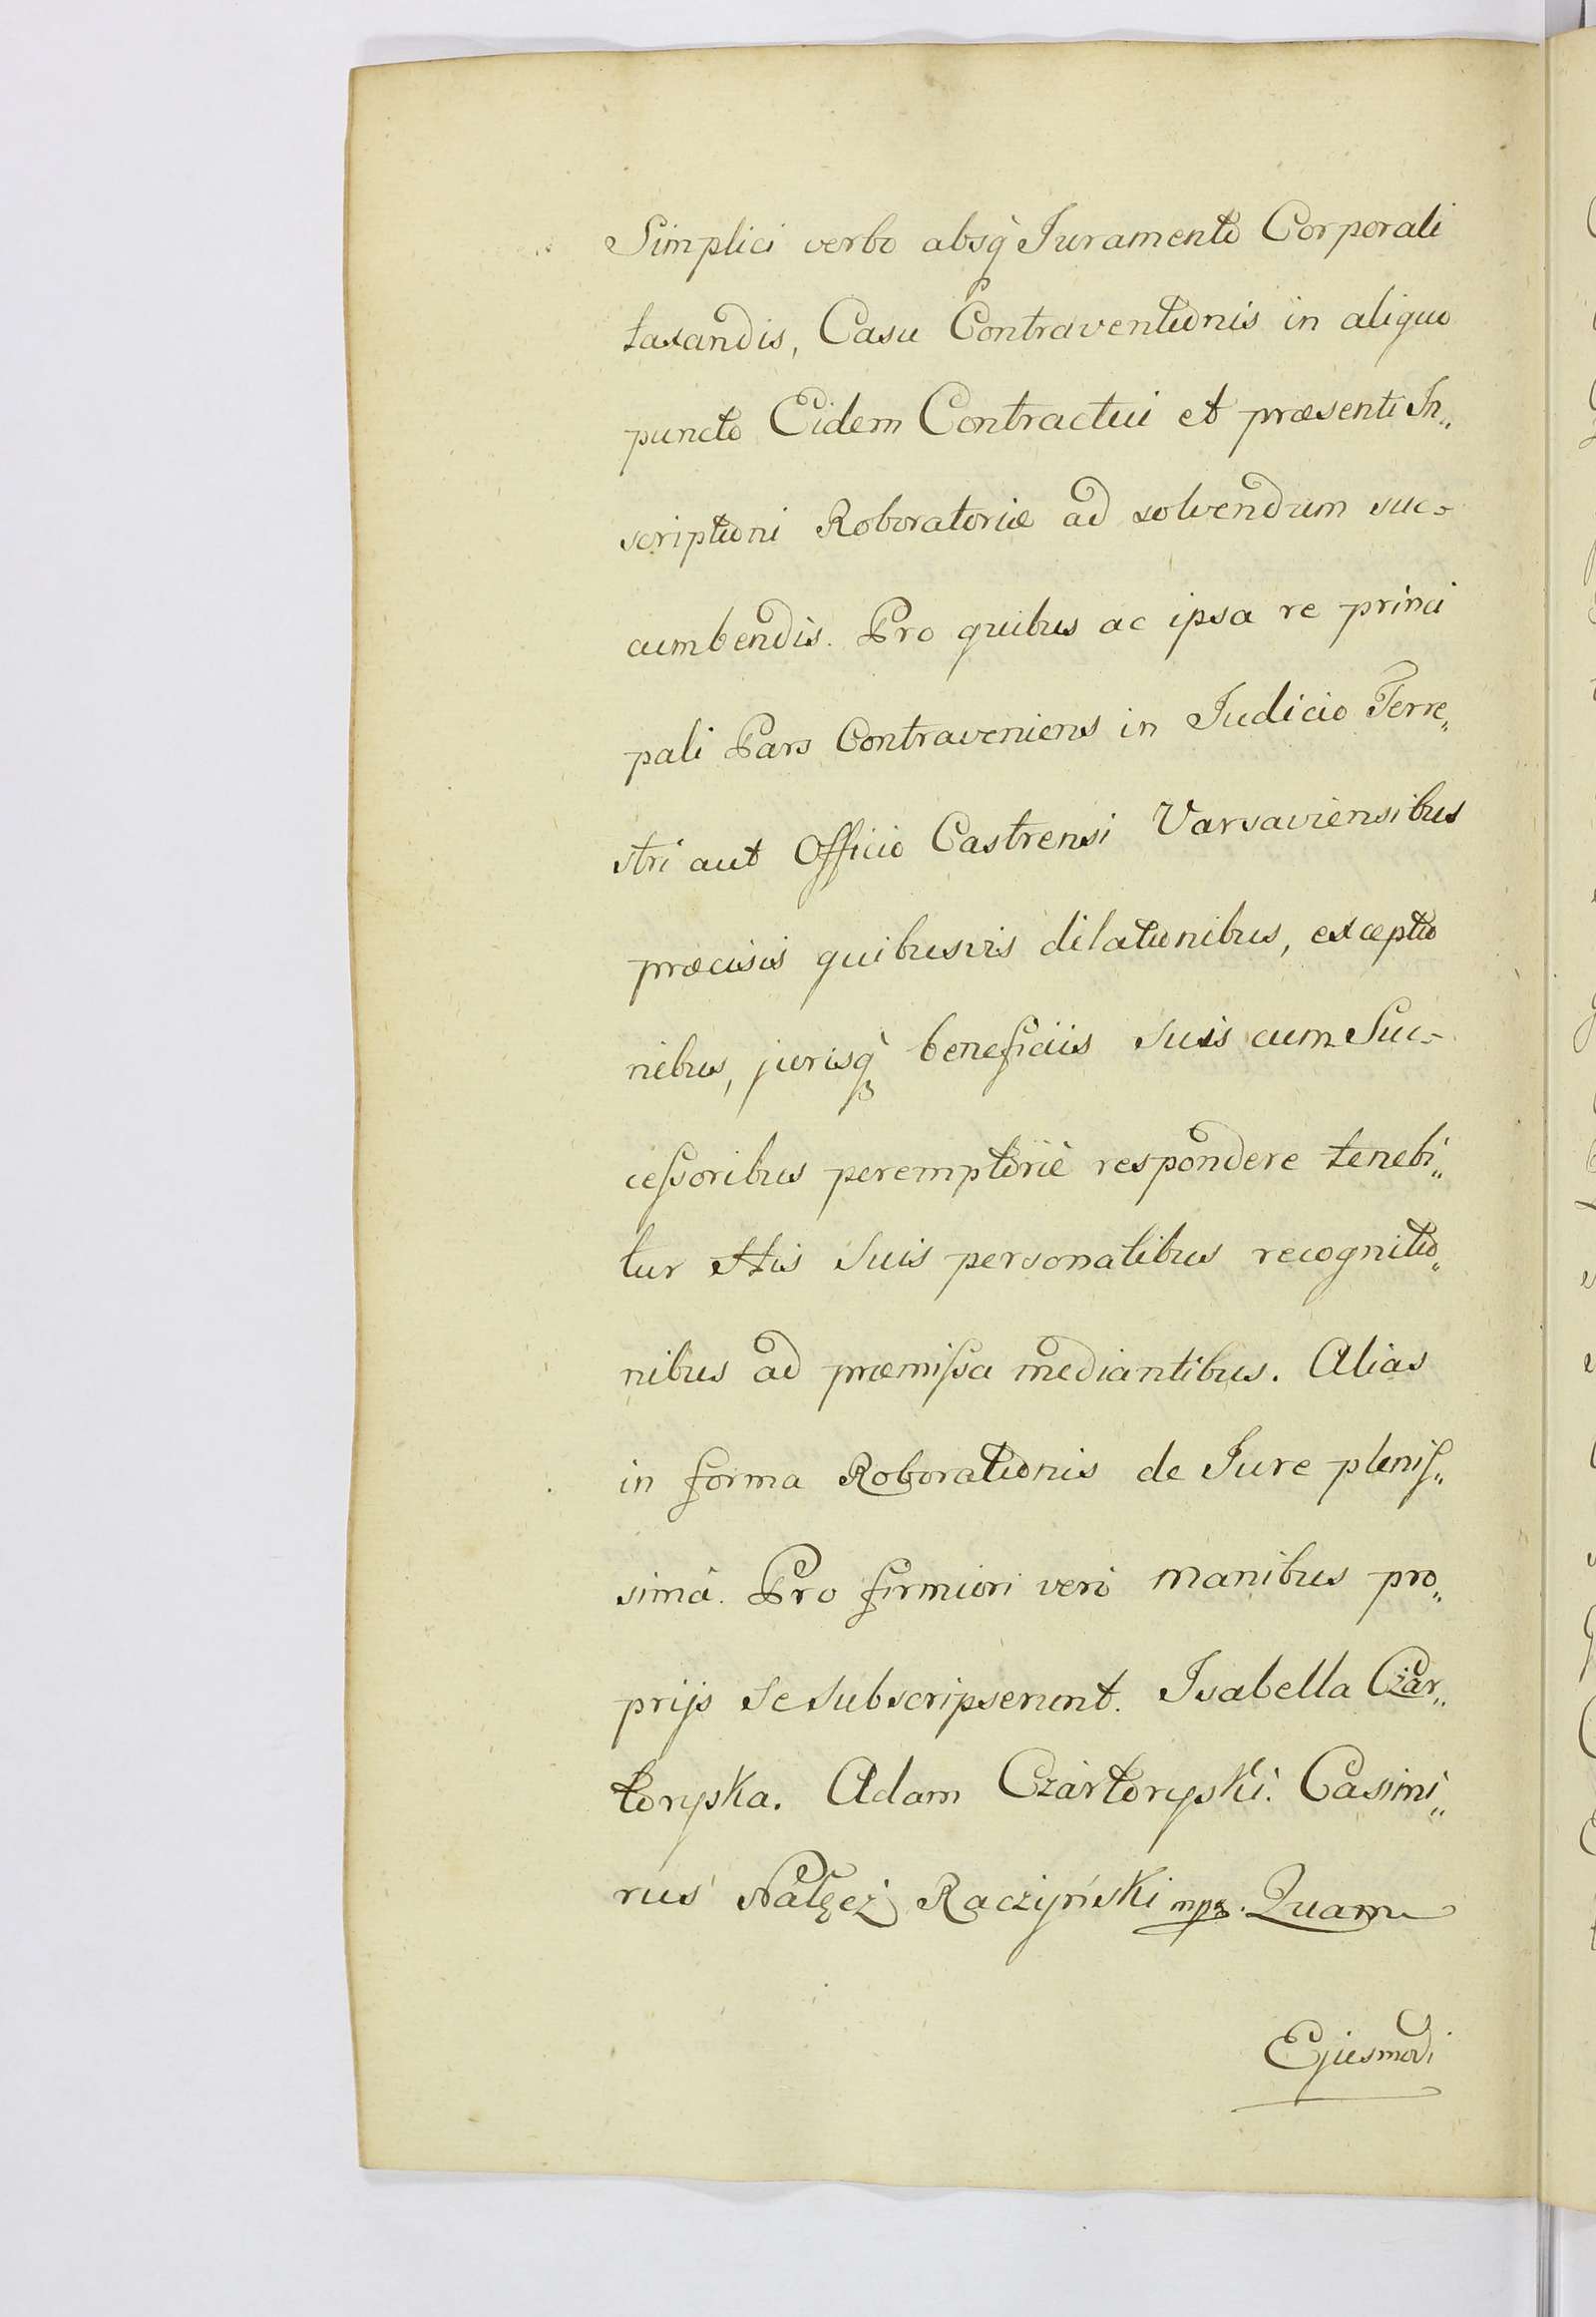 Simplici verbo absq̀ Juramento Corporali
taxandis, Casu Contraventionis in aliquo
puncto Eidem Contractui et præsenti In„
scriptioni Roboratoriæ ad solvendum suc=
cumbendis. Pro quibus ac ipsa re princi
pali Pars Contraveniens in Judicio Terre„
stri aut Officio Castrensi Varsaviensibus
præcisis quibusvis dilationibus, exceptio
nibus, jurisq̀ beneficiis suis cum Suc=
ceſsoribus peremptoriè respondere tenebi„
tur His suis personalibus recognitio„
nibus ad præmiſsa mediantibus. Alias
in forma Roborationis de Jure pleniſ„
simâ. Pro firmiori verò manibus pro„
prijs se subscripserunt. Isabella Czar„
toryska. Adam Czartoryski. Casimi„
rus Nałęcz Raczyński mpp. Quam
Ejusmodi